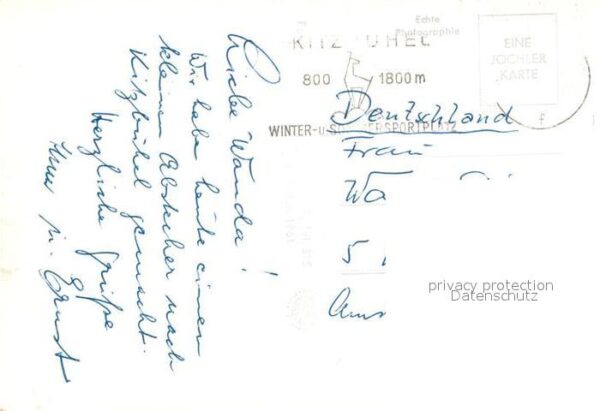 Liebe Wanda!
Wir haben heute einen
kleinen Abstecher nach
Kitzbühel gemacht.
Herzliche Grüße
u. Ernst
Echte
Photographie
KITZBÜHEL
800 1800 m
WINTER-u-SOMMERSPORTPLATZ
EINE
JOCHLER
KARTE
f
Deutschland
Frau
Wa
5
privacy protection
Datenschutz